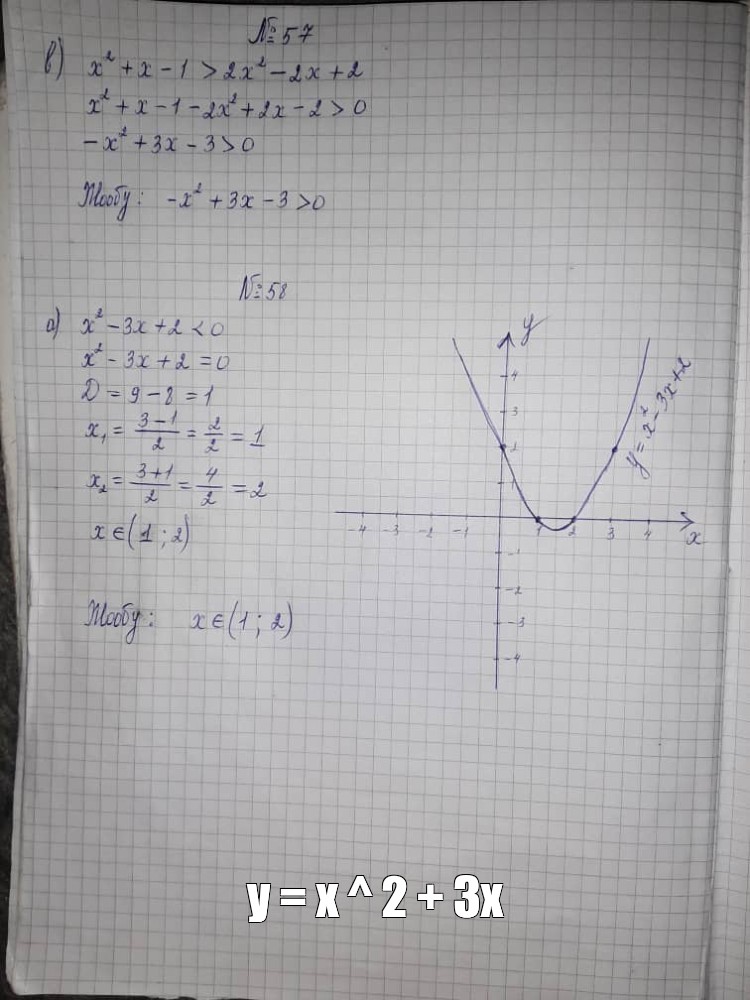 №57
в) x² + x - 1 > 2x² - 2x + 2
x² + x - 1 - 2x² + 2x - 2 > 0
-x² + 3x - 3 > 0
Жообу: -x² + 3x - 3 > 0
№58
а) x² - 3x + 2 < 0
x² - 3x + 2 = 0
D = 9 - 8 = 1
x₁ = (3-1)/2 = 2/2 = 1
x₂ = (3+1)/2 = 4/2 = 2
x ∈ (1 ; 2)
Жообу: x ∈ (1 ; 2)
y
4
3
2
1
-4 -3 -2 -1 1 2 3 4 x
-1
-2
-3
-4
y = x² - 3x + 2
y = x ^ 2 + 3x